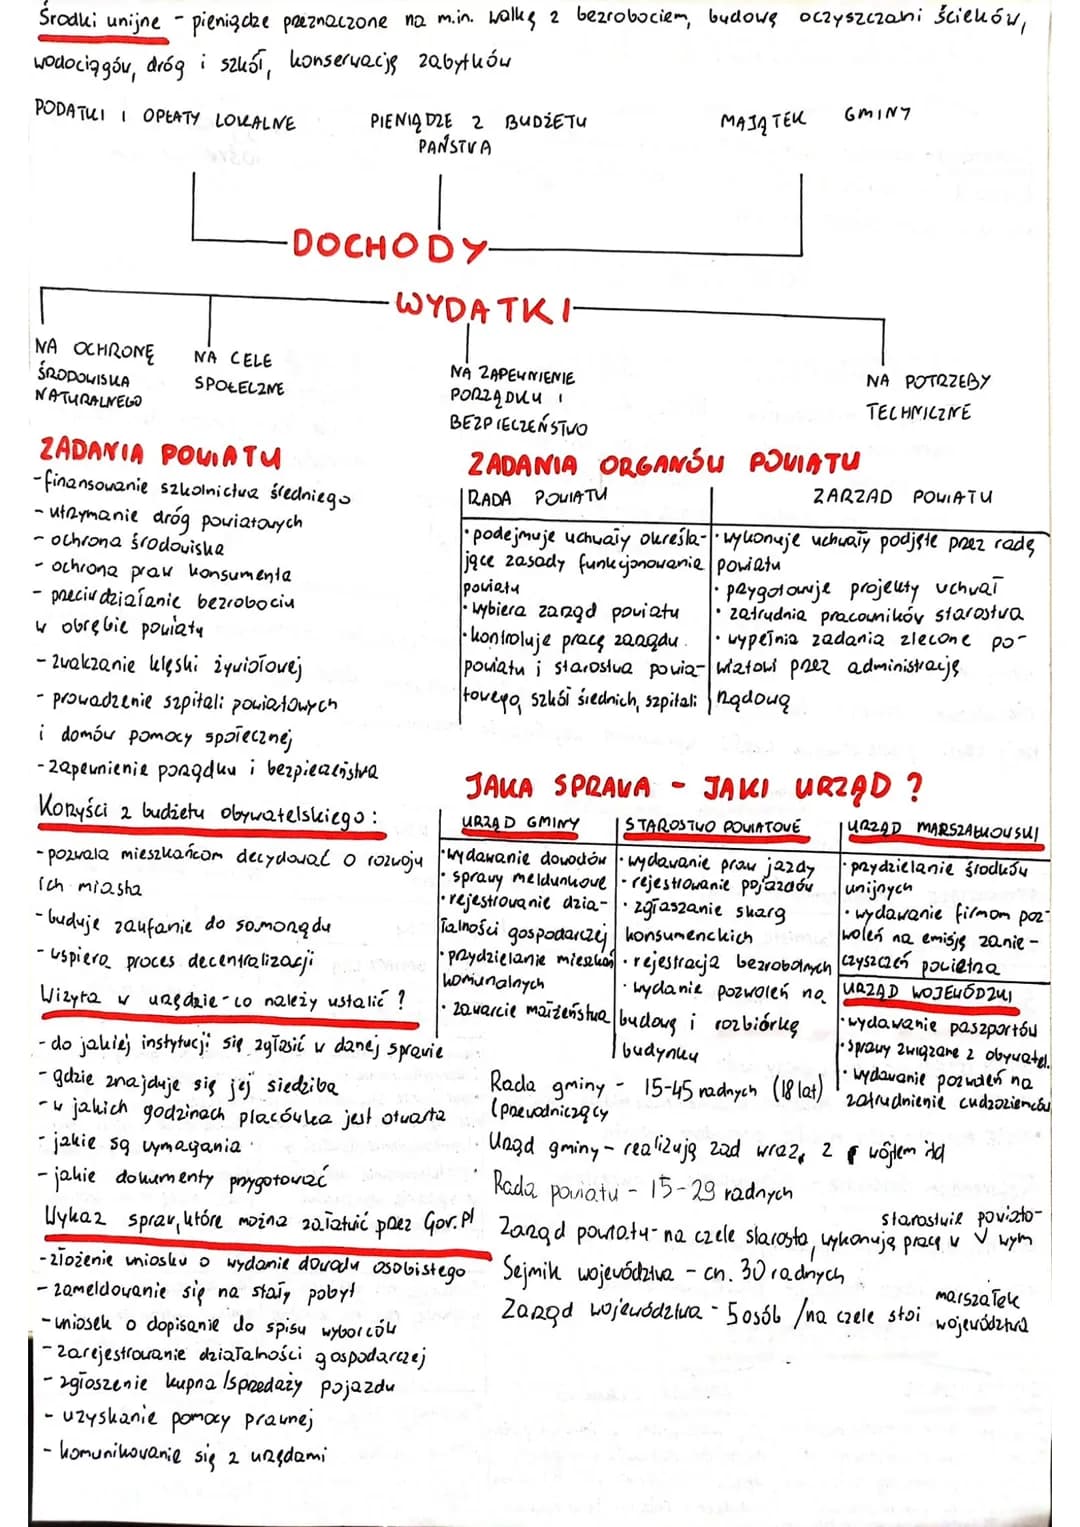 Środki unijne - pieniądze przeznaczone na m.in. walkę z bezrobociem, budowę oczyszczani ścieków,
wodociągów, dróg i szkół, konserwację zabytków
PODATKI I OPŁATY LOKALNE
PIENIĄDZE Z BUDŻETU
PAŃSTWA
MAJĄTEK GMINY
DOCHODY
WYDATKI
NA OCHRONĘ
ŚRODOWISKA
NATURALNEGO
NA CELE
SPOŁECZNE
NA ZAPEWNIENIE
PORZĄDKU I
BEZPIECZEŃSTWO
NA POTRZEBY
TECHNICZNE
ZADANIA POWIATU
-finansowanie szkolnictwa średniego
- utrzymanie dróg powiatowych
- ochrona środowiska
- ochrona praw konsumenta
- przeciwdziałanie bezrobociu
w obrębie powiatu
- zwalczanie klęski żywiołowej
- prowadzenie szpitali powiatowych
i domów pomocy społecznej
- zapewnienie porządku i bezpieczeństwa
ZADANIA ORGANÓW POWIATU
RADA POWIATU
• podejmuje uchwały określa-
jące zasady funkcjonowania
powiatu
• wybiera zarząd powiatu
• kontroluje pracę zarządu
powiatu i starostwa powia-
towego, szkół średnich, szpitali
ZARZAD POWIATU
• wykonuje uchwały podjęte przez radę
powiatu
• przygotowuje projekty uchwał
• zatrudnia pracowników starostwa
• wypełnia zadania zlecone po-
wiatowi przez administrację
rządową
Korzyści z budżetu obywatelskiego:
- pozwala mieszkańcom decydować o rozwoju
ich miasta
- buduje zaufanie do samorządu
- wspiera proces decentralizacji
Wizyta w urzędzie - co należy ustalić?
- do jakiej instytucji się zgłosić w danej sprawie
- gdzie znajduje się jej siedziba
- w jakich godzinach placówka jest otwarta
- jakie są wymagania
- jakie dokumenty przygotować
Wykaz spraw, które można załatwić przez Gov.pl
- złożenie wniosku o wydanie dowodu osobistego
- zameldowanie się na stały pobyt
- wniosek o dopisanie do spisu wyborców
- zarejestrowanie działalności gospodarczej
- zgłoszenie kupna /sprzedaży pojazdu
- uzyskanie pomocy prawnej
- komunikowanie się z urzędami
JAKA SPRAWA - JAKI URZĄD?
URZĄD GMINY
• wydawanie dowodów
• sprawy meldunkowe
• rejestrowanie dzia-
łalności gospodarczej
• przydzielanie mieszkań
komunalnych
• zawarcie małżeństwa
STAROSTWO POWIATOWE
• wydawanie praw jazdy
• rejestrowanie pojazdów
• zgłaszanie skarg
konsumenckich
• rejestracja bezrobotnych
• wydanie pozwoleń na
budowę i rozbiórkę
budynku
URZĄD MARSZAŁKOWSKI
• przydzielanie środków
unijnych
• wydawanie firmom poz-
woleń na emisję zanie-
czyszczeń powietrza
URZĄD WOJEWÓDZKI
• wydawanie paszportów
• sprawy związane z obywatel.
• wydawanie pozwoleń na
zatrudnienie cudzoziemców
Rada gminy - 15-45 radnych (18 lat)
(przewodniczący
Urząd gminy - realizują zad wraz, z wójtem
Rada powiatu - 15-29 radnych
Zarząd powiatu - na czele starosta, wykonują pracę w starostwie powiato-
wym
Sejmik województwa - cn. 30 radnych
Zarząd województwa - 5 osób /na czele stoi marszałek
województwa